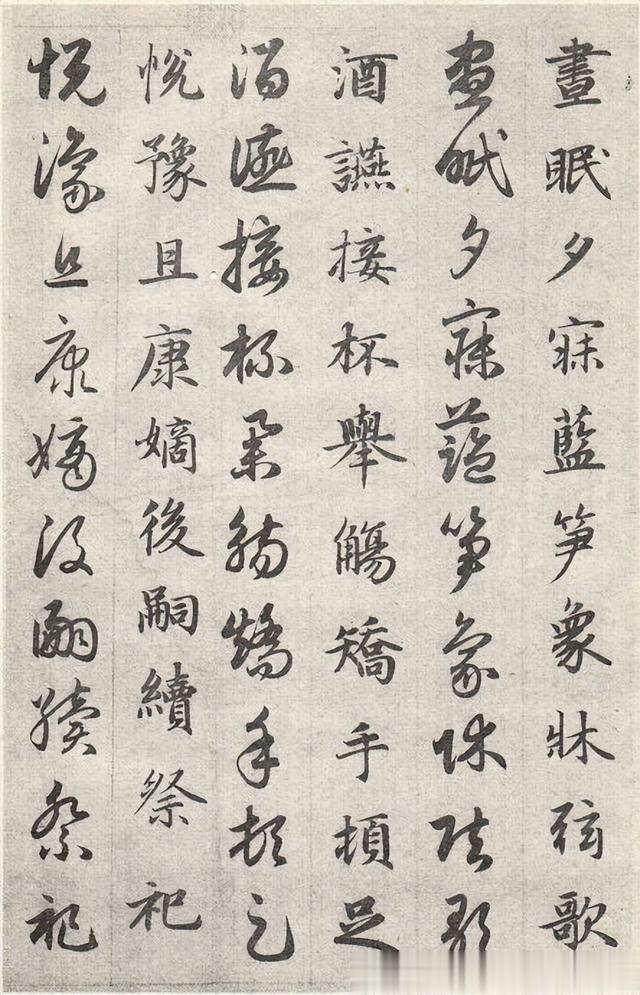 晝眠夕寐藍笋象牀弦歌
晝眠夕寐藍笋象牀弦歌
酒讌接杯舉觴矯手頓足
酒讌接杯舉觴矯手頓足
悅豫且康嫡後嗣續祭祀
悅豫且康嫡後嗣續祭祀